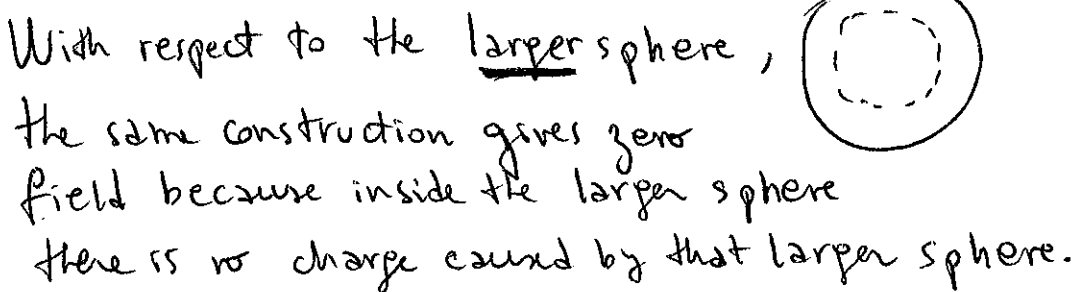 With respect to the larger sphere,
the same construction gives zero
field because inside the larger sphere
there is no charge caused by that larger sphere.